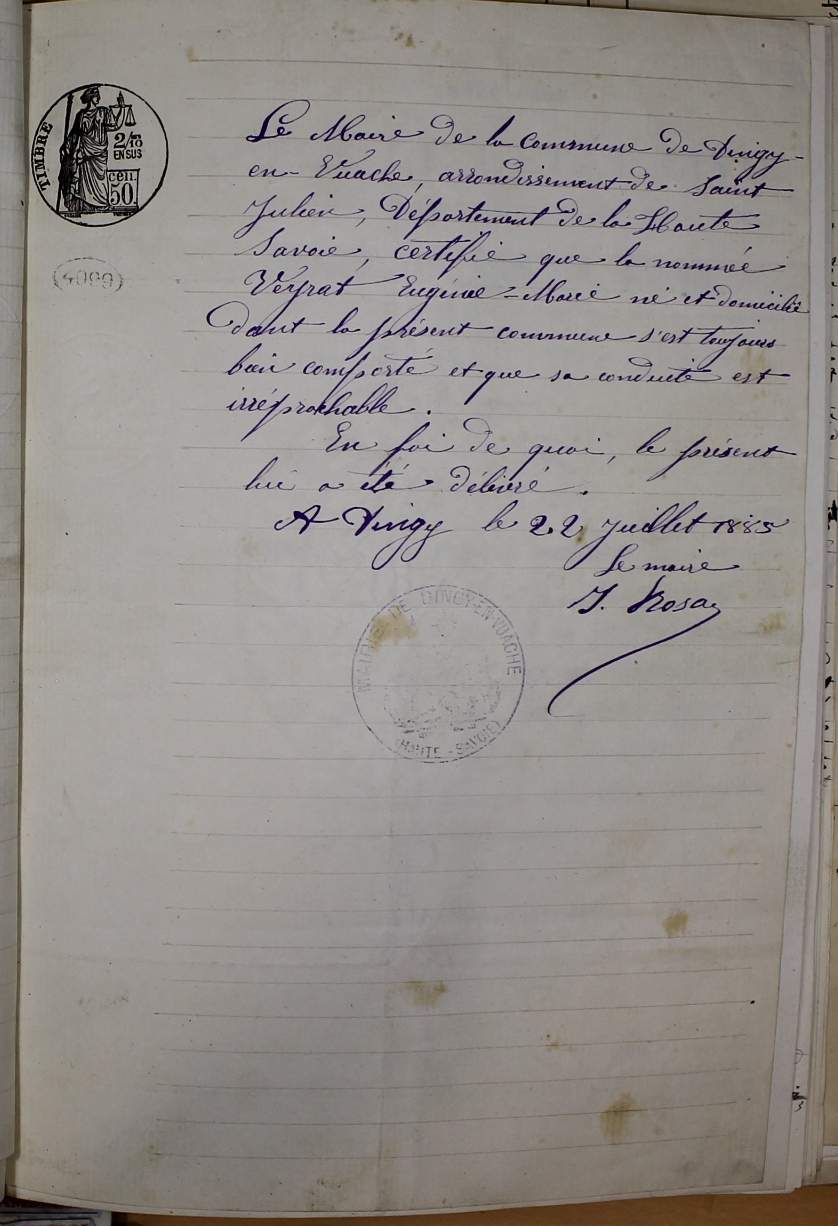 TIMBRE
2/10
EN SUS
cen.
50.
(4099)
Le Maire de la commune de Dingy-
en-Vuache, arrondissement de Saint
Julien, Département de la Haute
Savoie, certifie que la nommée
Veyrat Eugénie-Marie né et domicilié
dant la présent commune s'est toujours
bien comporté et que sa conduite est
irréprochable.
En foi de quoi, le présent
lui a été délivré.
A Dingy le 22 Juillet 1885
Le maire
J. Rosay
MAIRIE DE DINGY-EN-VUACHE
(HAUTE-SAVOIE)